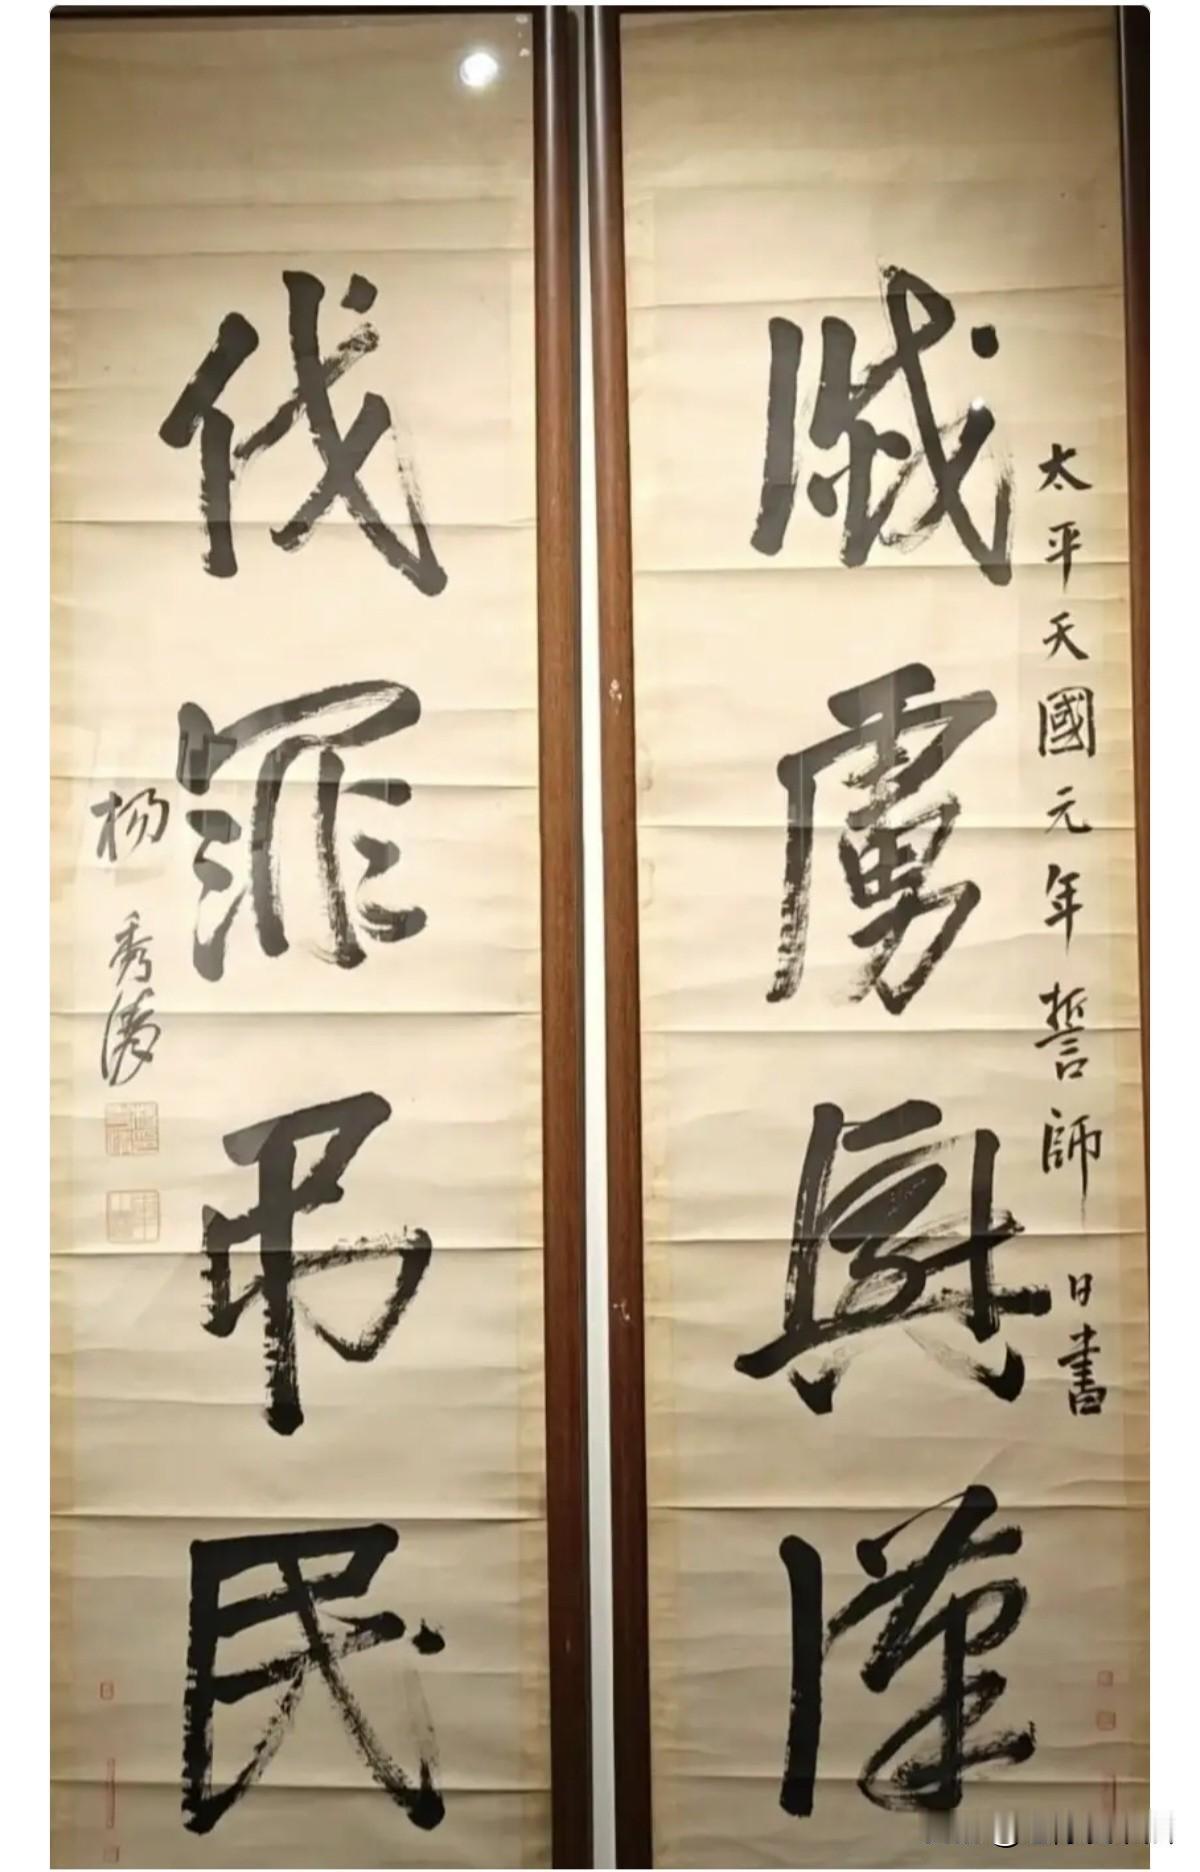 太平天國元年誓師日書
滅虜興漢
伐罪吊民
杨秀清